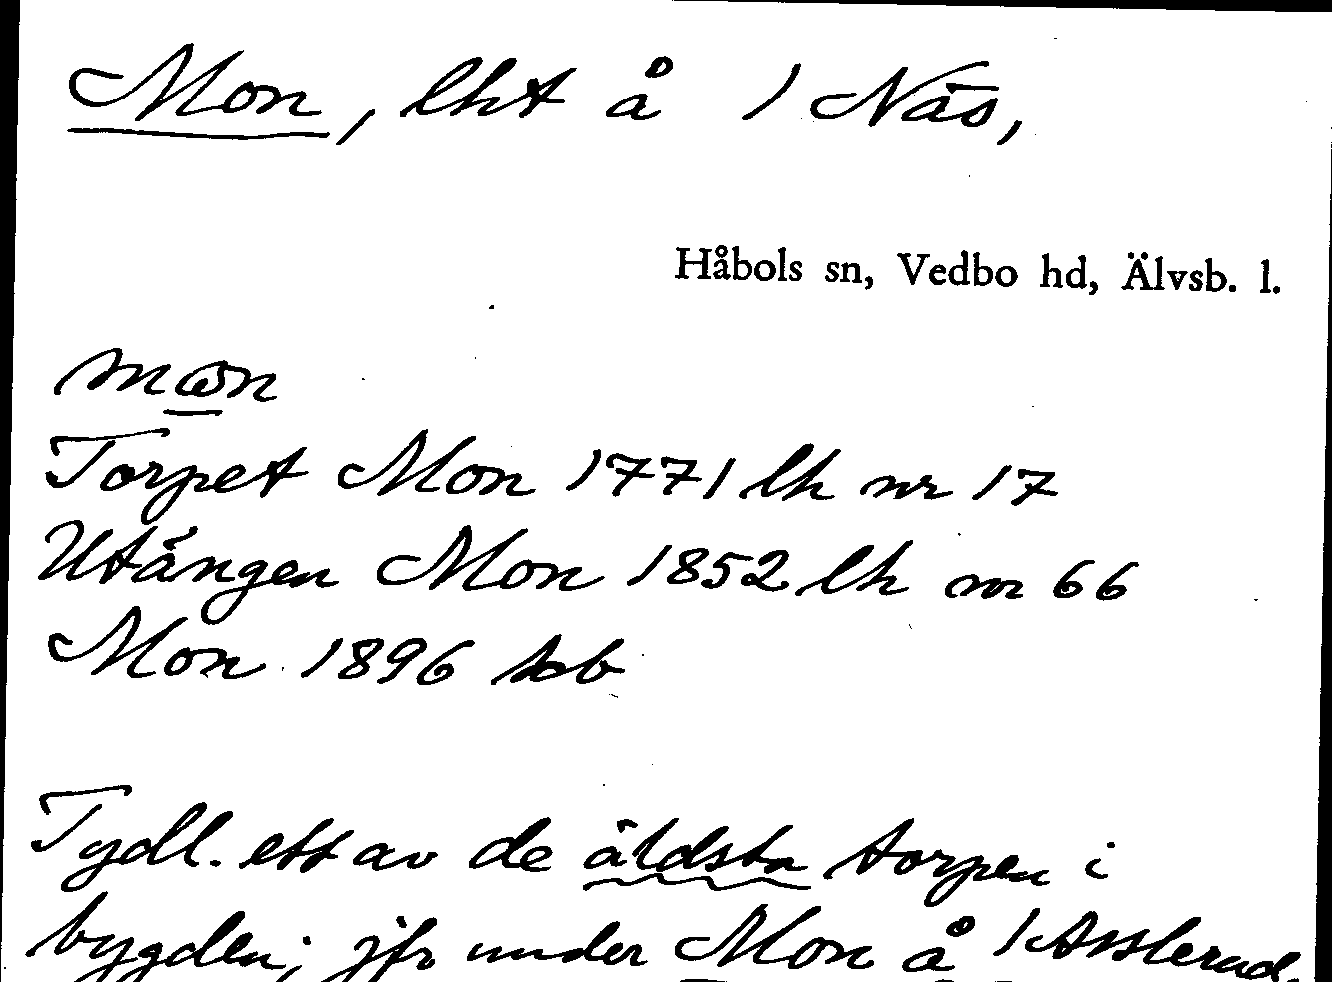 Mon, lht å 1 Näs,
Håbols sn, Vedbo hd, Älvsb. l.
Torpet Mon 1771 lh nr 17
Utängen Mon 1852 lh nr 66
Mon 1896
Tydl. ett av de äldsta torpen i
bygden; jfr under Mon å 1 Asslerud.